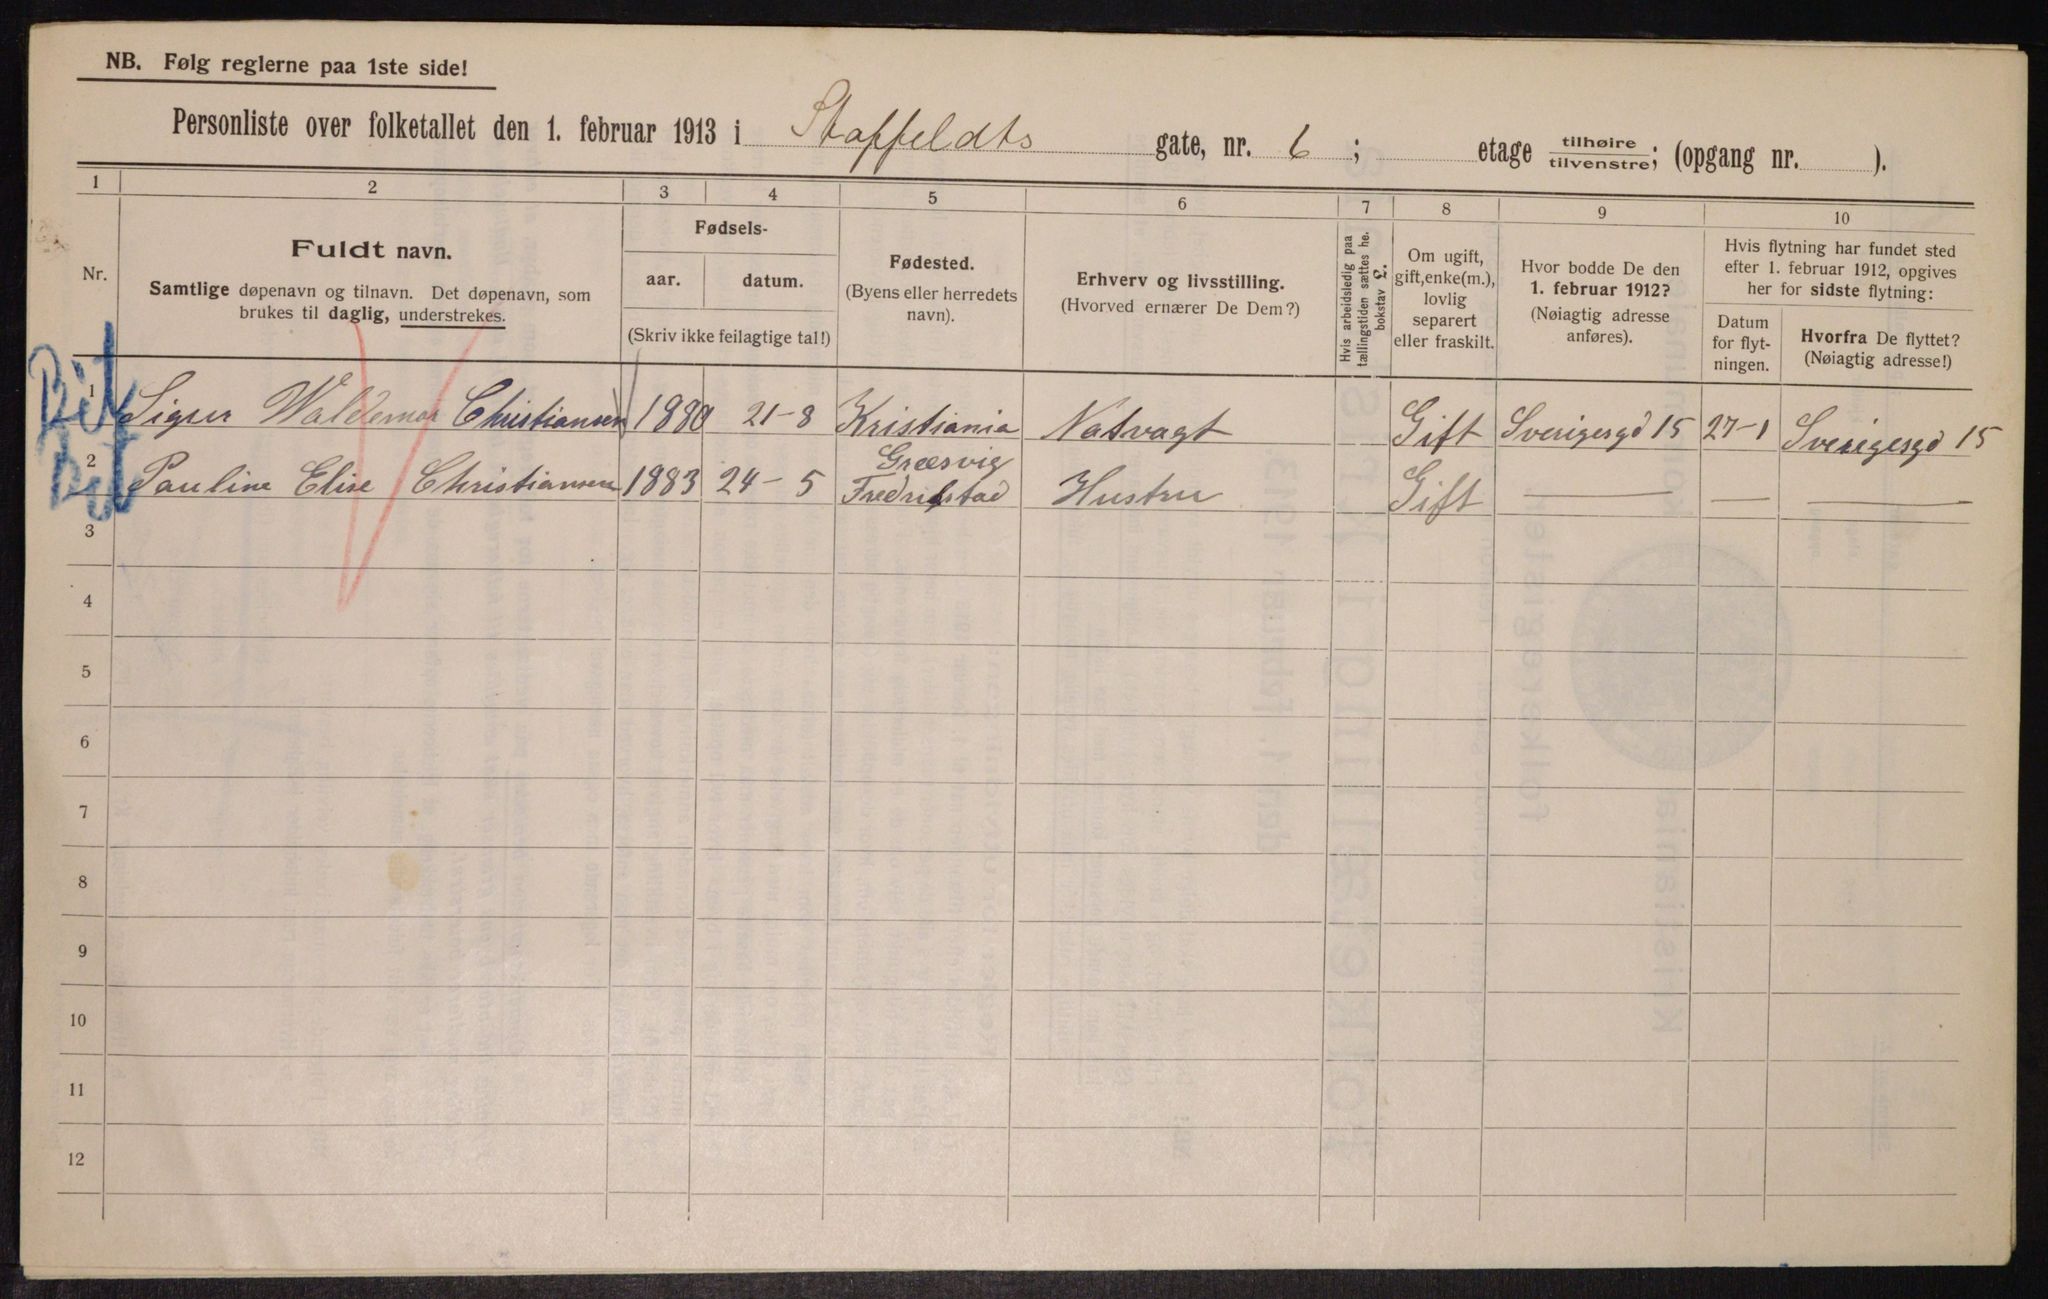 NB. Følg reglerne paa 1ste side!
Personliste over folketallet den 1. februar 1913 i Staffeldts gate, nr. 6 ; etage tilhøire tilvenstre; (opgang nr. ).
1 2 3 4 5 6 7 8 9 10
Nr.
Fuldt navn.
Samtlige døpenavn og tilnavn. Det døpenavn, som
brukes til daglig, understrekes.
Fødsels-
aar. datum.
(Skriv ikke feilagtige tal!)
Fødested.
(Byens eller herredets
navn).
Erhverv og livsstilling.
(Hvorved ernærer De Dem?)
Hvis arbeidsledig paa
tællingstiden sættes he.
bokstav L.
Om ugift,
gift, enke(m.),
lovlig
separert
eller fraskilt.
Hvor bodde De den
1. februar 1912?
(Nøiagtig adresse
anføres).
Hvis flytning har fundet sted
efter 1. februar 1912, opgives
her for sidste flytning:
Datum
for flyt-
ningen.
Hvorfra De flyttet?
(Nøiagtig adresse!)
1 Waldemar Christiansen 1880 21-8 Kristiania Natvagt Gift Sverigesgd 15 27-1 Sverigesgd 15
2 Pauline Elise Christiansen 1883 24-5 Græsvig Fredrikstad Hustru Gift — — —
3
4
5
6
7
8
9
10
11
12